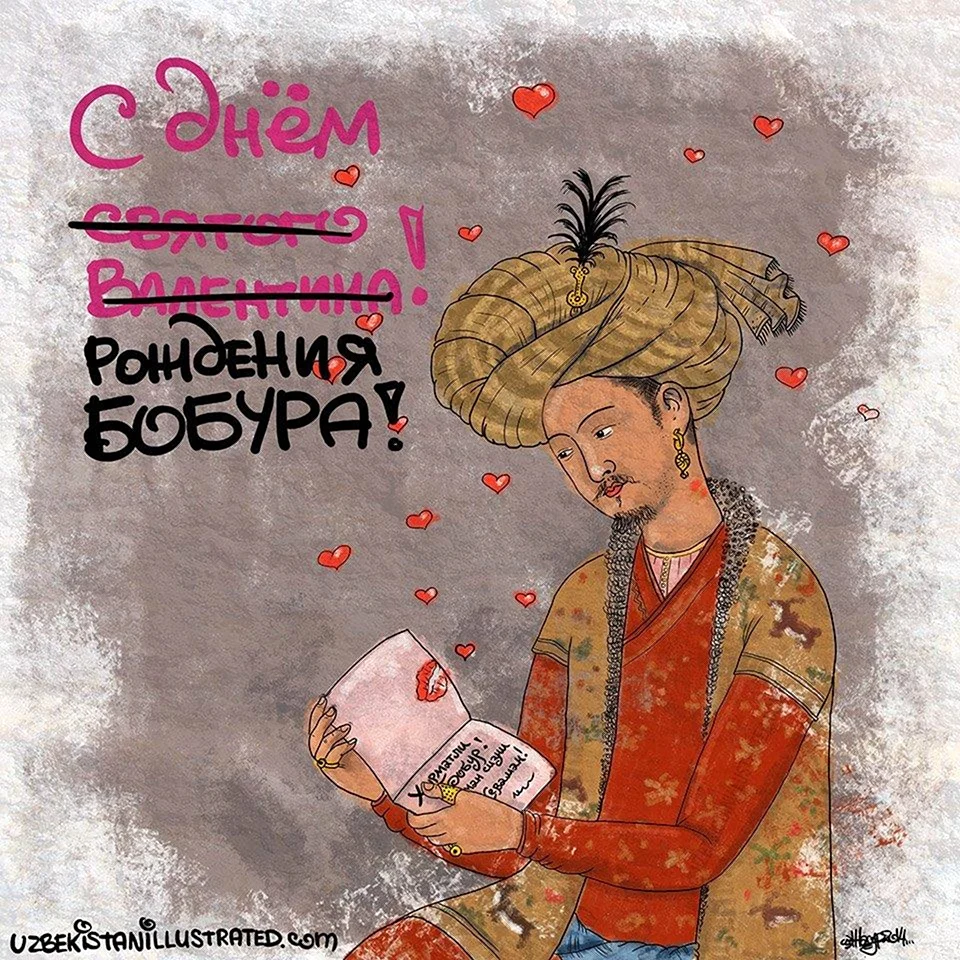 С днём
святого
Валентина!
РОЖДЕНИЯ
БОБУРА!
Хурматли
Бобур!
ман сизни
севаман!
UZBEKISTANILLUSTRATED.COM